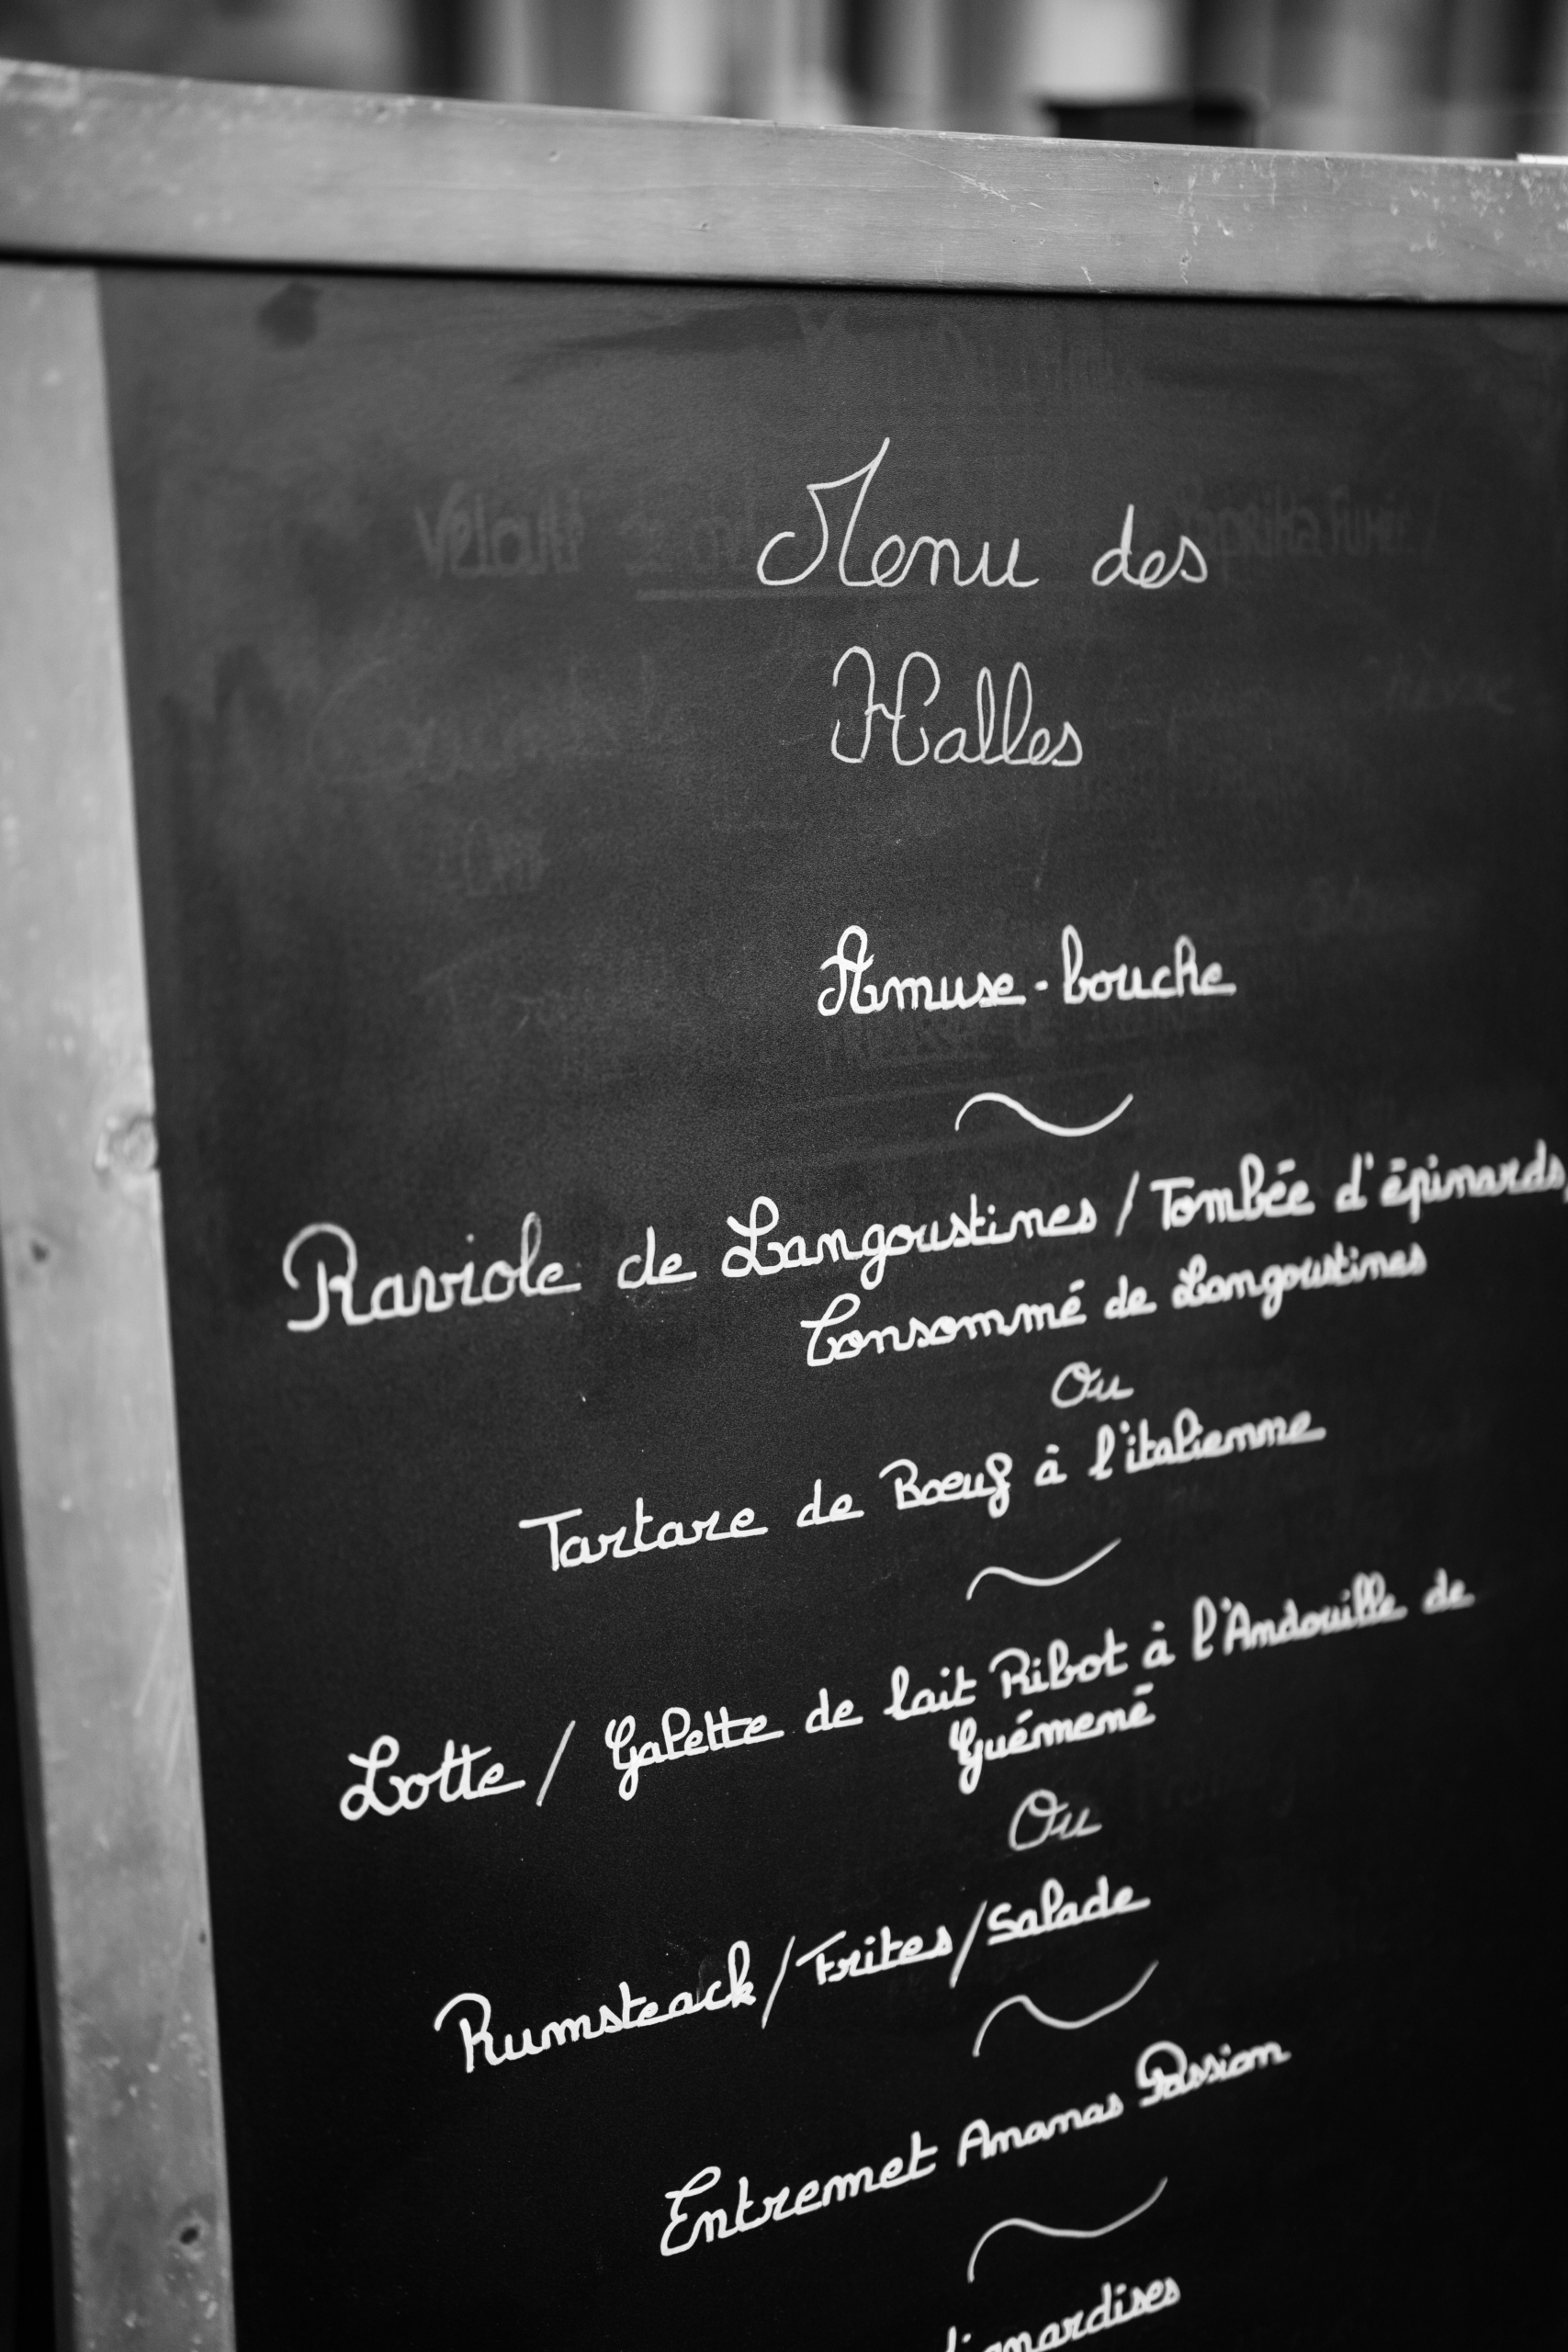 Menu des
Halles
Amuse-bouche
Raviole de Langoustines / Tombée d'épinards
Consommé de Langoustines
Ou
Tartare de Bœuf à l'italienne
Lotte / Galette de lait Ribot à l'Andouille de
Guémené
Ou
Rumsteack / Frites / Salade
Entremet Ananas Passion